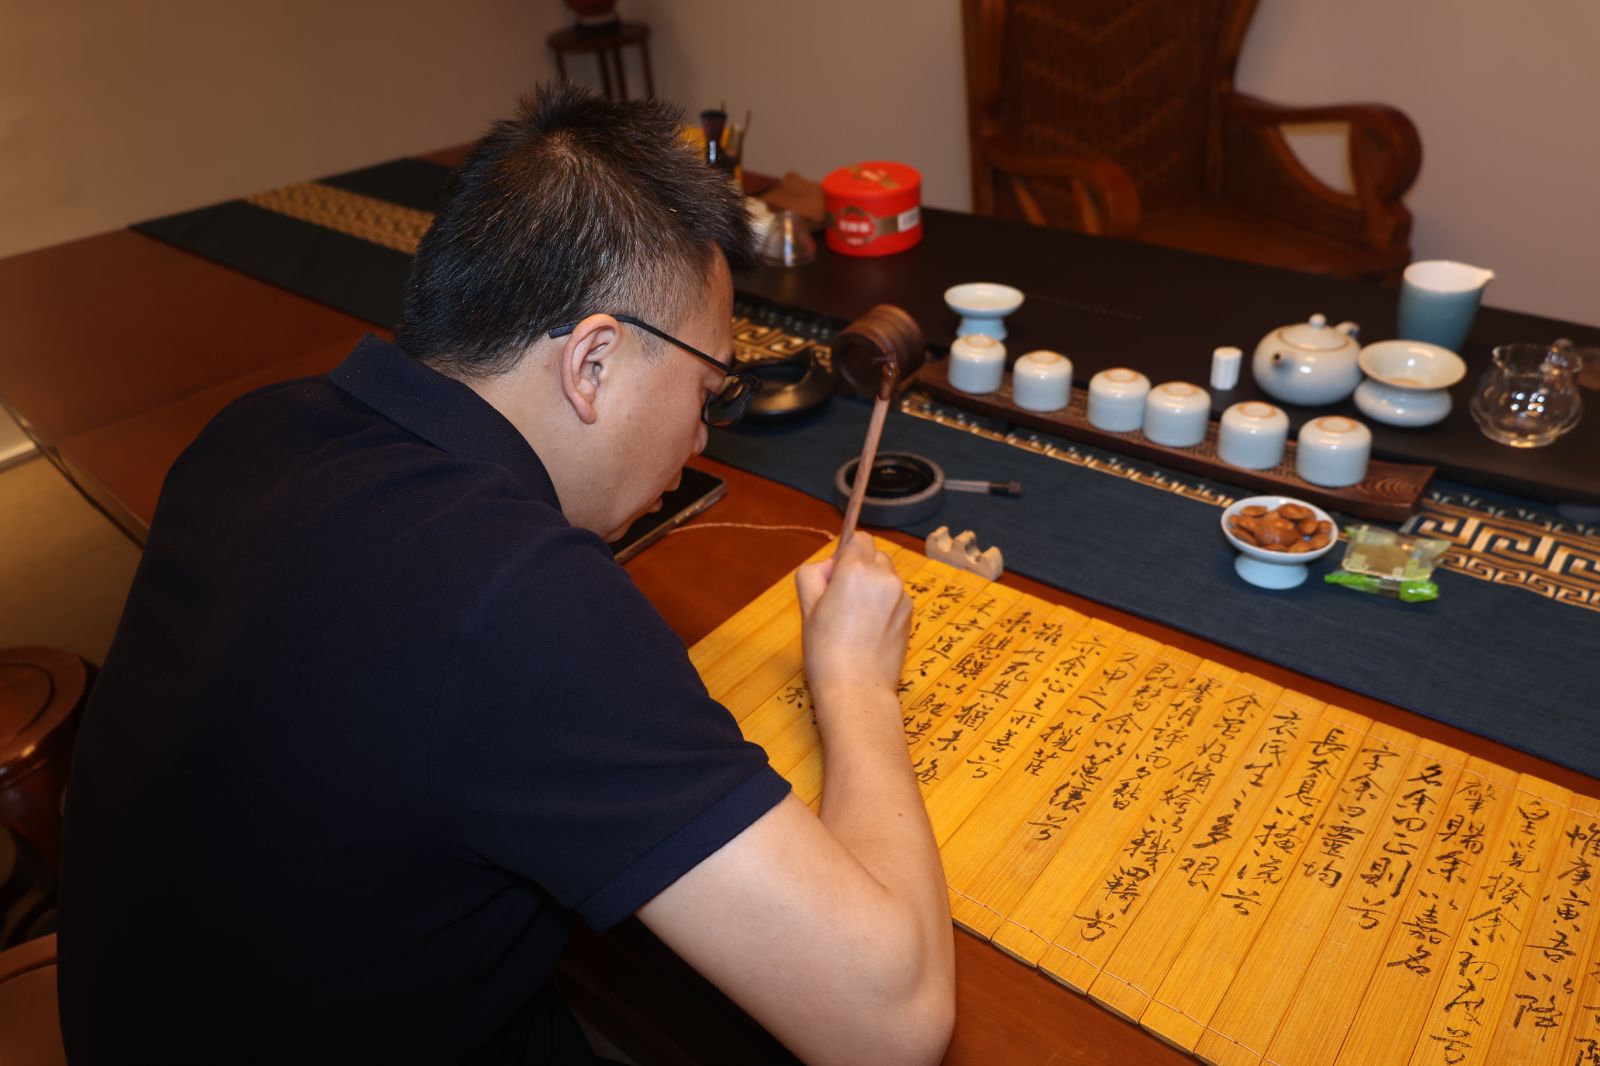 惟庚寅吾以降
皇覽揆余初度兮
肇賜余以嘉名
名余曰正則兮
字余曰靈均
長太息以掩涕兮
哀民生之多艱
余雖好脩姱以鞿羈兮
謇朝誶而夕替
既替余以蕙纕兮
又申之以攬茝
亦余心之所善兮
雖九死其猶未悔
乘騏驥以馳騁
來吾道夫先
路漫
索